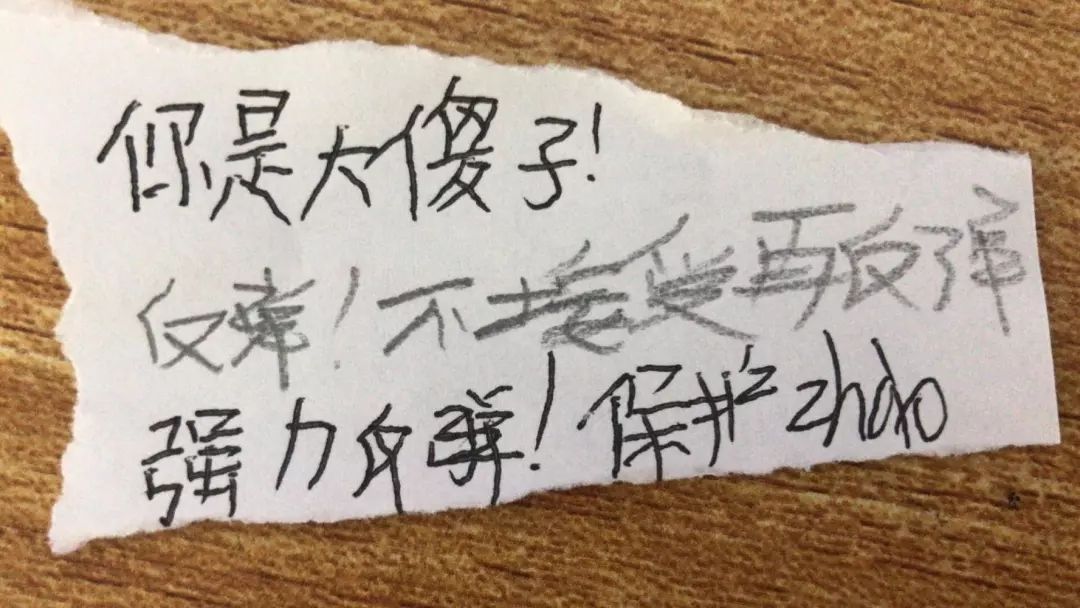 你是大傻子!
反弹!不接受再反弹
强力反弹!保护zhào